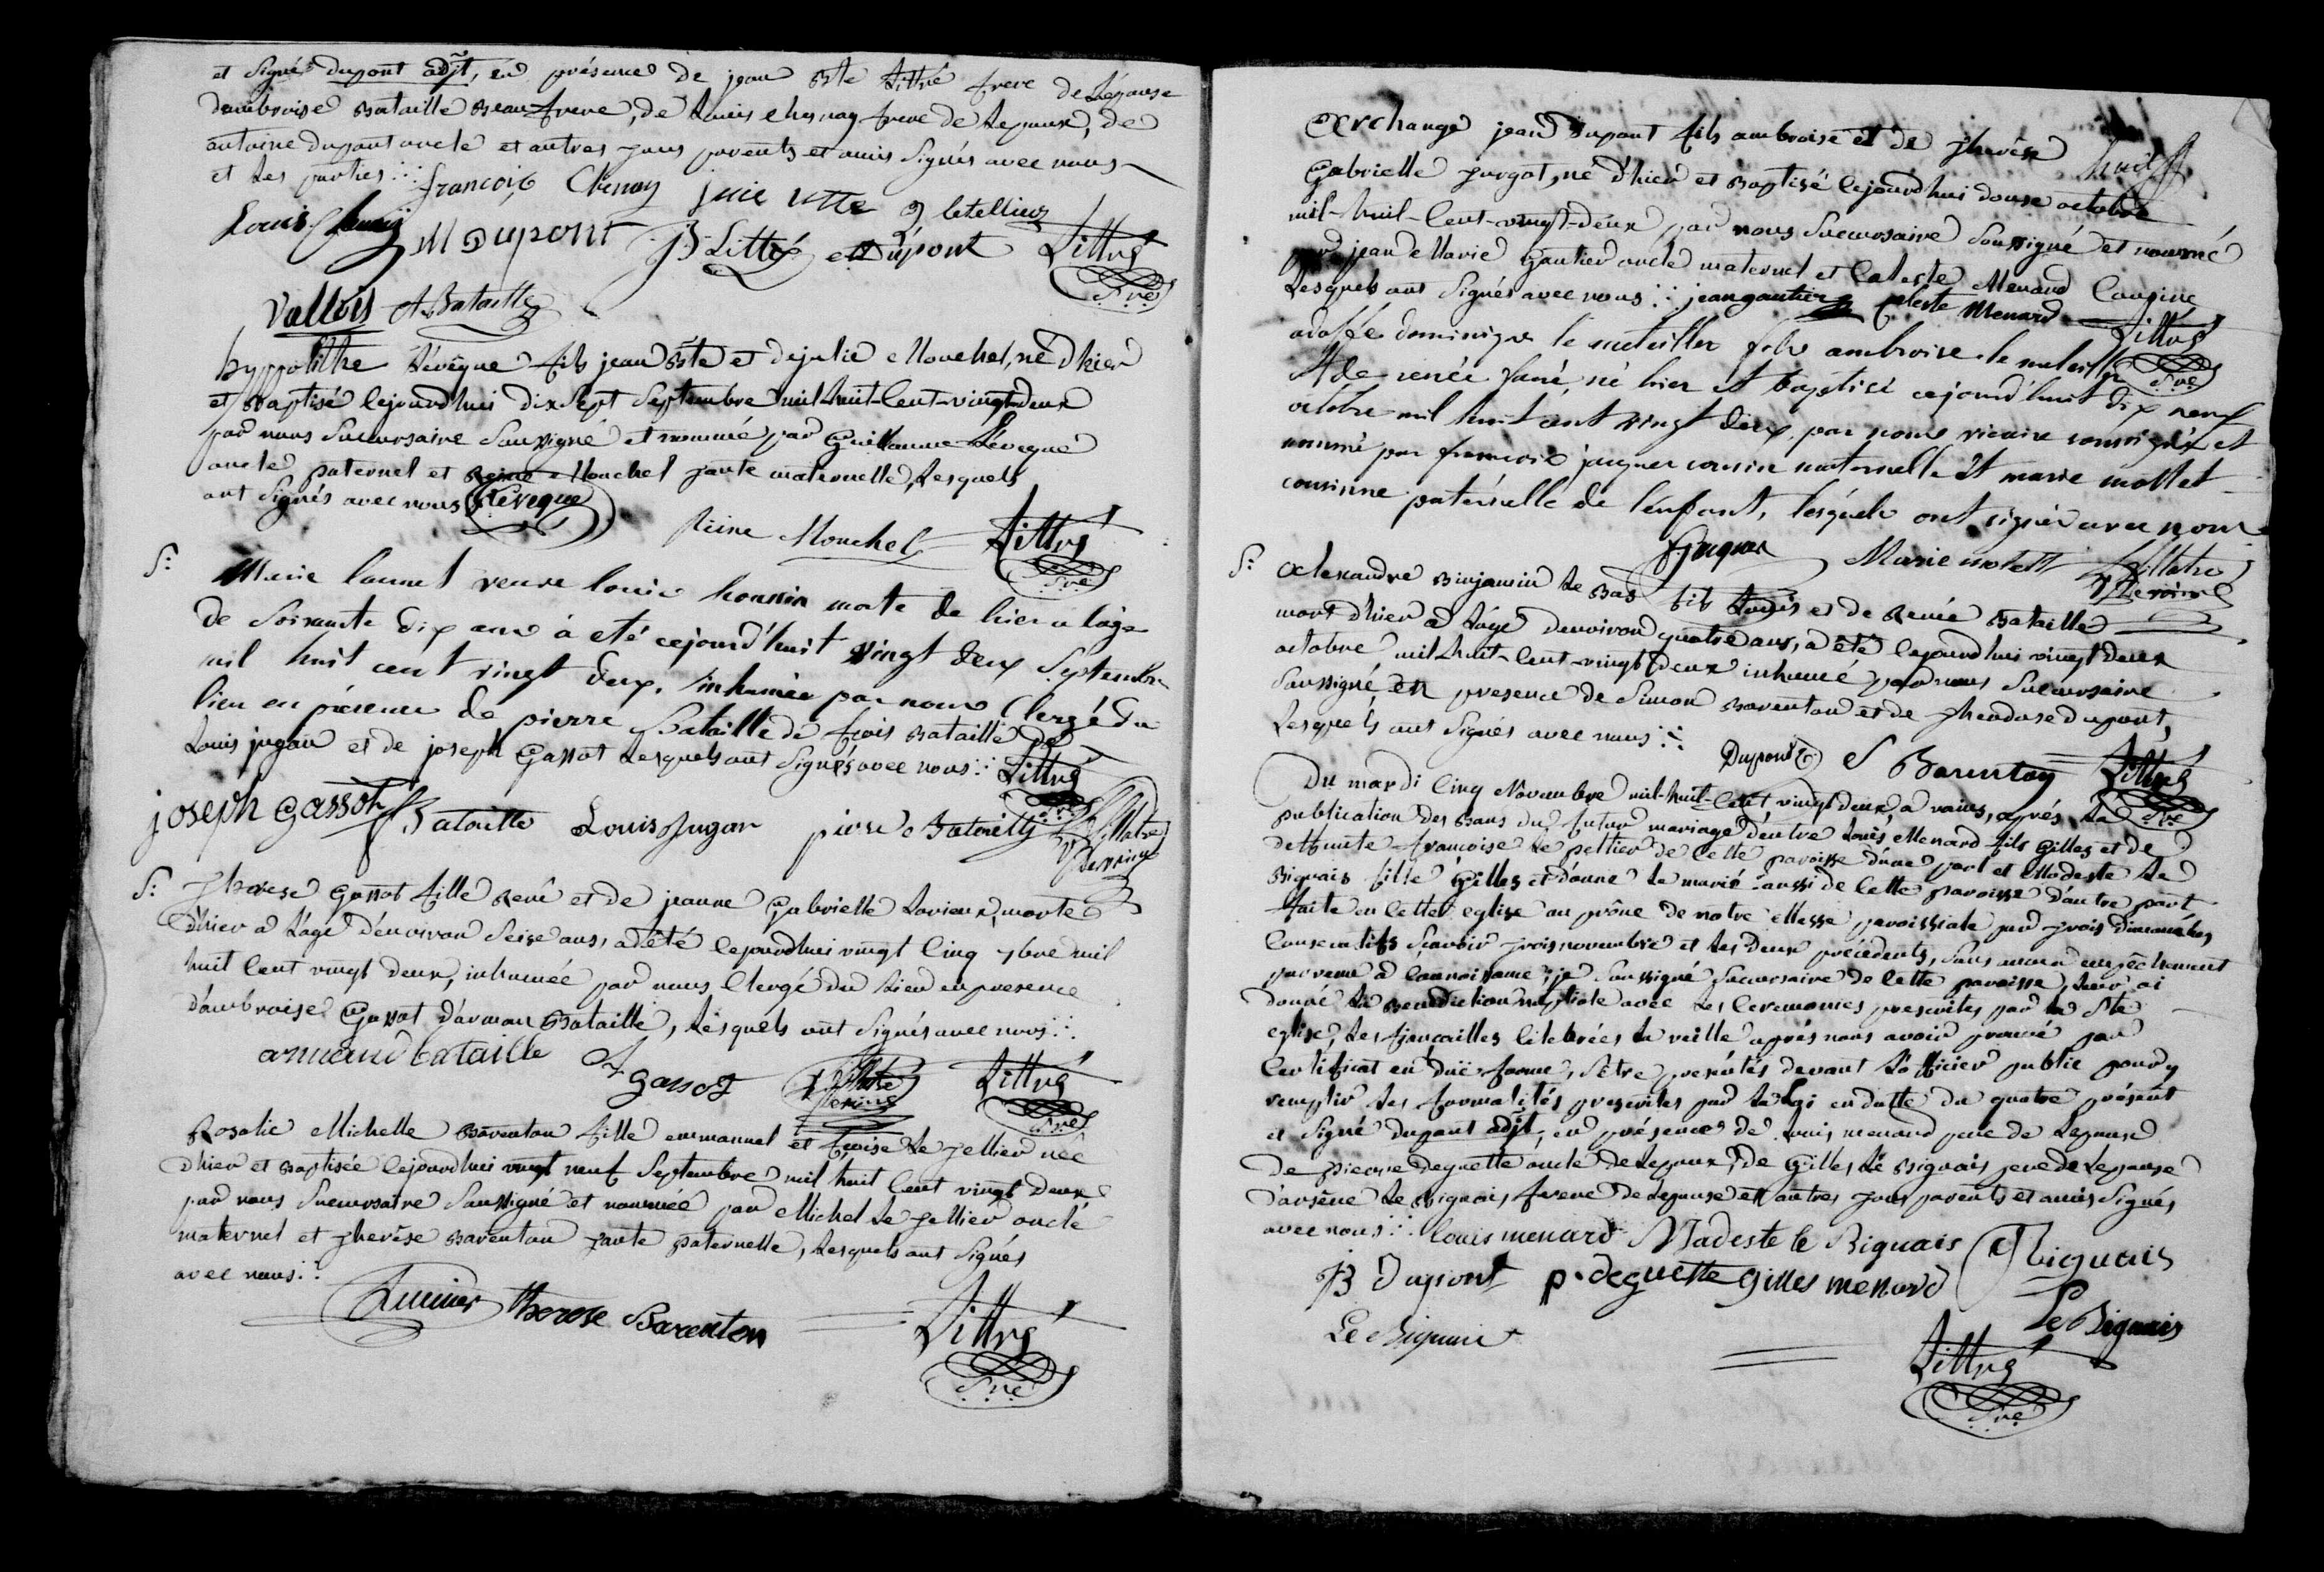 et signé dupont adjt, en présence de jean Bte Littré frere de Lépouse
dambroise Bataille Beaufrere, de Louis Chesnay frere de Lepoux, de
antoine dupont oncle et autres tous parents et amis signés avec nous
et les parties
françois Chenay g letellier
Louis Chenay M Dupont JB Littré Dupont Littré
Sre
Vallois A Bataille
hyppolithe Levêque fils jean Bte et de julie Mouchel, né d'hier
et Baptisé cejourdhui dix Sept Septembre mil-huit-Cent-vingt-deux
par nous Succursaire Soussigné et nommé par Guillaume Levêque
oncle paternel et Reine Mouchel tante maternelle, Lesquels
ont signés avec nous Leveque
Reine Mouchel Littré
Sre
S: Marie launet veuve louis houssin morte de hier a lage
de Soixante dix ans à eté cejourd'huit vingt deux Septembre
mil huit cent vingt deux, inhumée par nous Clergé du
lieu en présence de pierre Bataille de frois Bataille de
Louis jugan et de joseph Gassot Lesquels ont Signés avec nous Littré
Sre
joseph Gassot f Bataille Louis Jugan pierre Bataille
S: Therese Gassot fille René et de jeanne Gabrielle Lorieux, morte
d'hier a L'age d'environ Seise ans, a été cejourdhui vingt Cinq 7bre mil
huit Cent vingt deux, inhumée par nous Clergé du Lieu en presence
d'ambroise Gassot d'arman Bataille, Lesquels ont Signés avec nous
armand bataille A gassot Littré
Sre
Rosalie Michelle Barenton fille emmanuel et frcoise Le Tellier née
d'hier et Baptisée cejourdhui vingt neuf Septembre mil huit Cent vingt deux
par nous Succursaire Soussigné et nommée par Michel Le Tellier oncle
maternel et Therèse Barenton tante paternelle, Lesquels ont Signés
avec nous
therese Barenton Littré
Sre
archange jean Dupont fils ambroise et de Therèse
Gabrielle Turgot, né d'hier et Baptisé cejourdhui douse octobre
mil-huit-Cent-vingt-deux par nous Succursaire Soussigné et nommé
par jean Marie Gautier oncle maternel et Celeste Menard Cousine
Lesquels ont Signés avec nous jean gautier Celeste Menard Littré
Sre
adolfe dominique le muteillier fils ambroise le muteillier
et de renée fané, né hier et baptisé cejourd'huit dix neuf
octobre mil huit cent vingt deux par nous vicaire soussigné et
nommé par francois jacques cousin maternelle et marie mottet
cousinne paternelle de lenfant, lesquels ont signés avec nous
F Jaques Marie motett
S: alexandre Binjamin Le Bas fils Louis et de Renée Bataille
mort d'hier a L'age denviron quatre ans, a été cejourdhui vingt deux
octobre mil-huit-Cent-vingt deux inhumé par nous Succursaire
Soussigné, en presence de Simon Barenton et de Theodose dupont,
Lesquels ont Signés avec nous
Dupont S Barenton Littré
Sre
Du mardi Cinq Novembre mil-huit-Cent vingt deux, a vains, après La
publication des Bans du futur mariage d'entre Louis Menard fils Gilles et de
deffunte francoise Le peltier de Cette paroisse d'une part et Modeste Le
Biguais fille Gilles et d'anne Le marié aussi de Cette paroisse d'autre part
faite en Cette eglise au prône de notre Messe paroissiale par trois dimanches
Consecutifs Sçavoir trois novembre et Les deux précédents, Sans aucun empêchement
parvenu a Connoissance; je Soussigné Succursaire de Cette paroisse, Leur ai
donné La Benediction nuptiale avec Les Ceremonies prescrites par La Ste
eglise, Les fiançailles Célébrées La veille après nous avoir prouvé par
Certificat en düe forme, s'être presentés devant L'officier public pour y
remplir Les formalités prescrites par La Loi en datte du quatre présent
et Signé dupont adjt, en présence de Louis menard pere de Lepoux
de pierre deguette oncle de Lepoux, de Gilles Le Biguais pere de Lepouse
d'arsène Le Biguais, frere de Lepouse et autres tous parents et amis Signés
avec nous louis menard Modeste le Biguais Biguais
JB Dupont p. deguette gilles menard
Le Biguais
Le Biguais
Littré
Sre